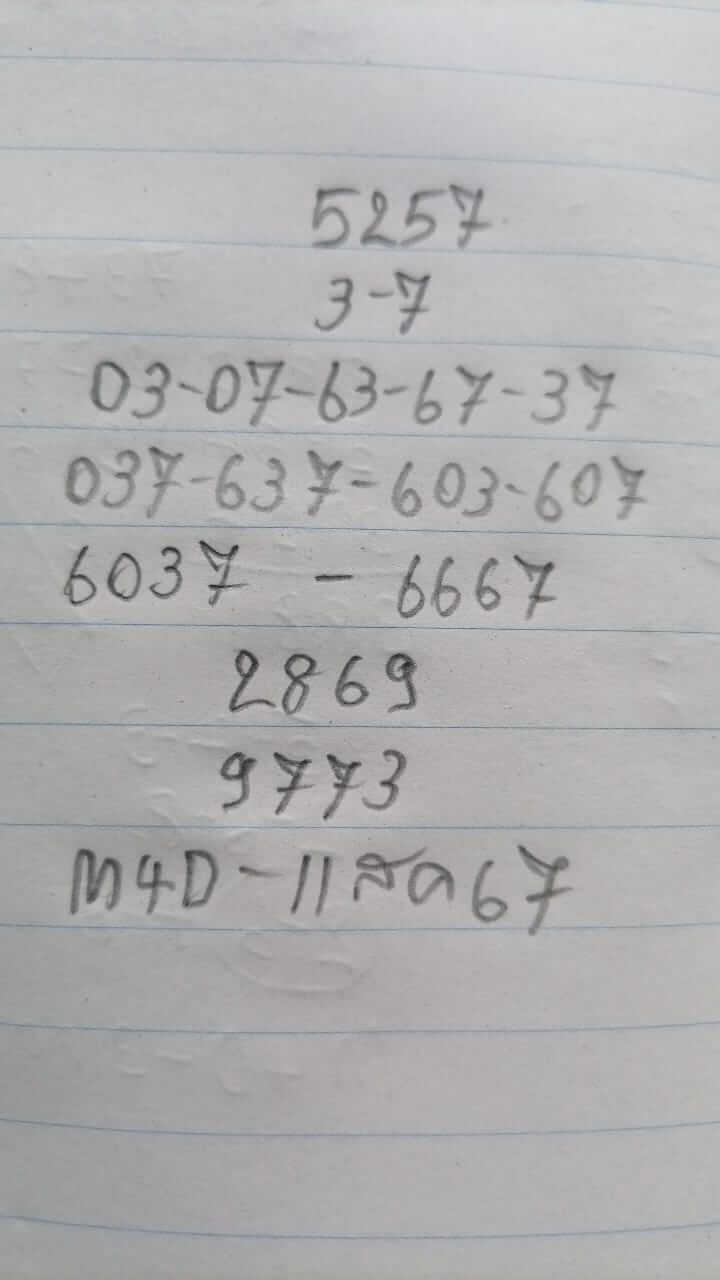 5257
3-7
03-07-63-67-37
037-637-603-607
6037 - 6667
2869
9773
M4D-แสด67